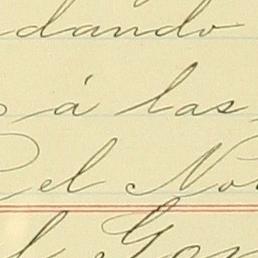 dando
á las
el No
l Gon